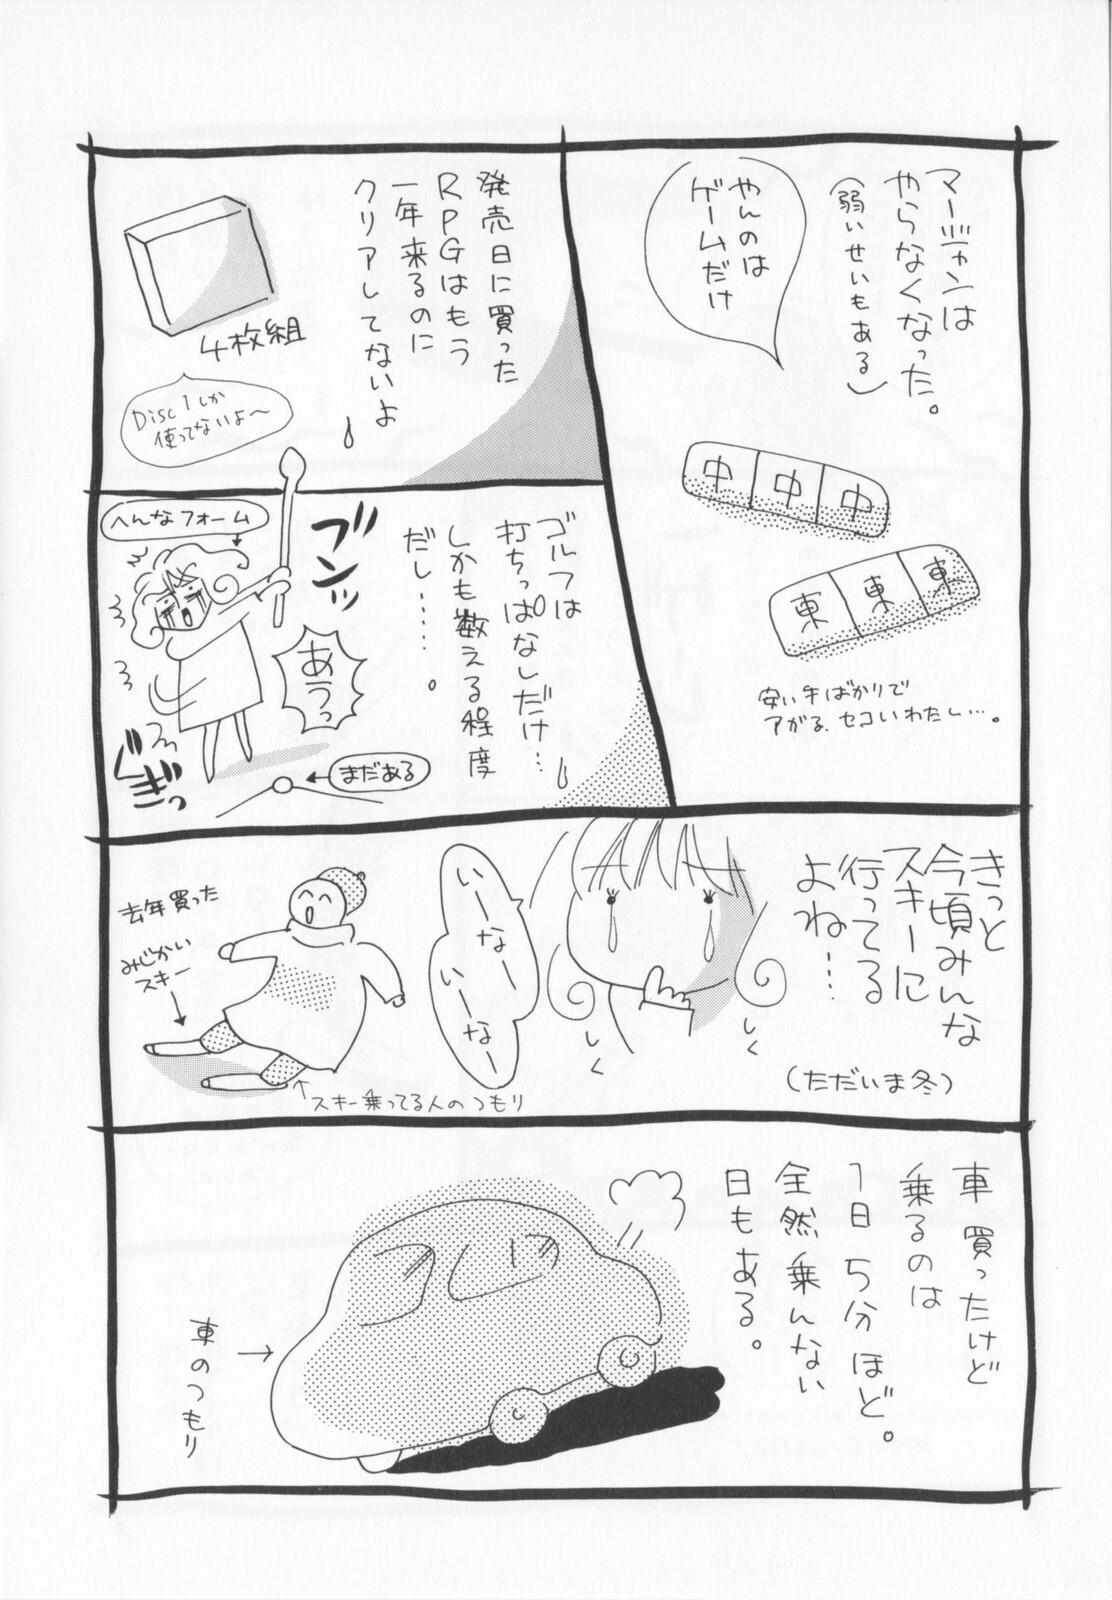 マージャンは
やらなくなった。
(弱いせいもある)
やんのは
ゲームだけ
中 中 中
東 東 東
安い手ばかりで
アがる、セコいわたし…。
発売日に買った
RPGはもう
一年来るのに
クリアしてないよ
4枚組
Disc 1しか
使ってないよ〜
ゴルフは
打ちっぱなしだけ…
しかも数える程度
だし……。
ブンッ
へんなフォーム
あうっ
ぐぎっ
まだある
きっと
今頃みんな
スキーに
行ってる
よね…
(ただいま冬)
しく
しく
いーなー
いーなー
去年買った
みじかい
スキー
スキー乗ってる人のつもり
車買ったけど
乗るのは
1日5分ほど。
全然乗んない
日もある。
車のつもり